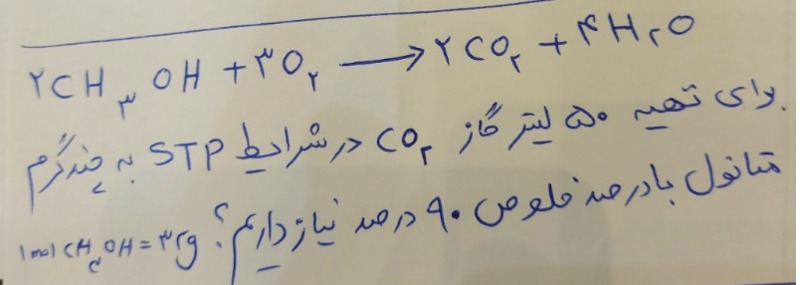 ۲CH۳OH + ۳O۲ ⟶ ۲CO۲ + ۴H۲O
برای تهیه ۵۰ لیتر گاز CO۲ در شرایط STP به چند گرم
متانول با درصد خلوص ۹۰ درصد نیاز داریم؟ ۱mol CH۳OH = ۳۲g